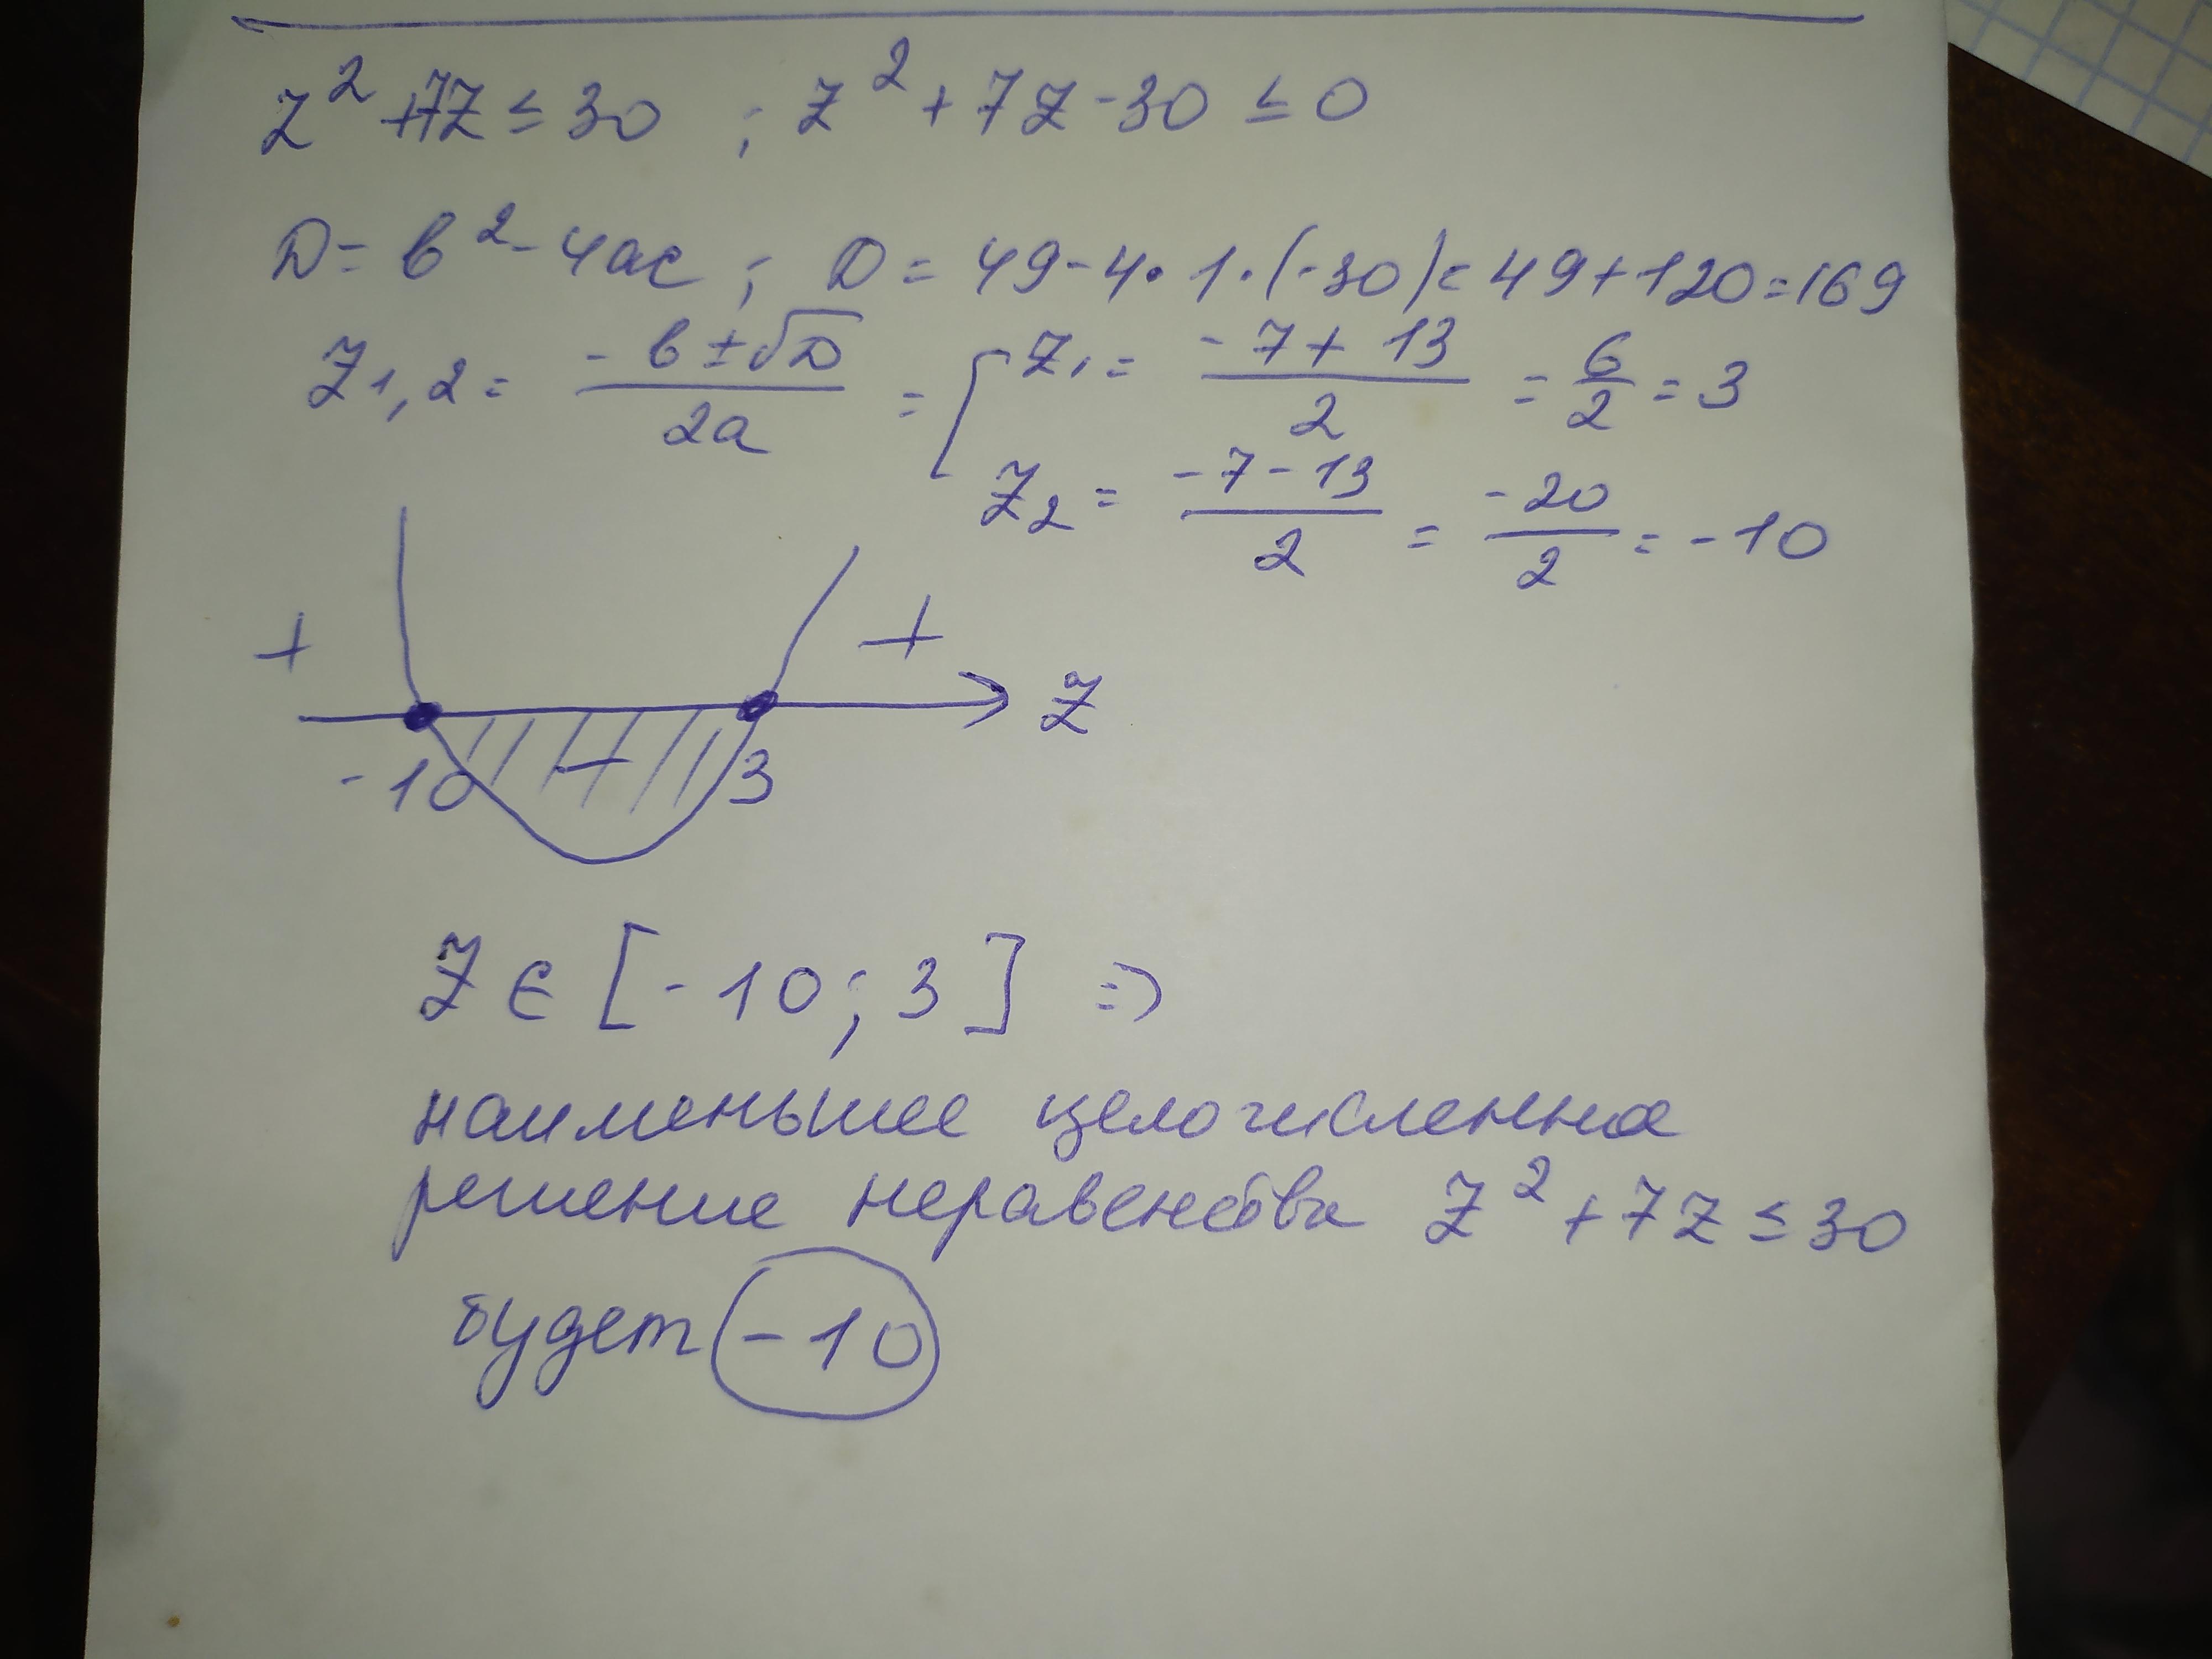 z² + 7z ≤ 30 ; z² + 7z - 30 ≤ 0
D = b² - 4ac ; D = 49 - 4 · 1 · (-30) = 49 + 120 = 169
z₁,₂ = (-b ± √D)/2a = [ z₁ = (-7 + 13)/2 = 6/2 = 3
z₂ = (-7 - 13)/2 = -20/2 = -10
+ +
z
-10 - 3
z ∈ [-10 ; 3] ⇒
наименьшее целочисленное
решение неравенства z² + 7z ≤ 30
будет -10